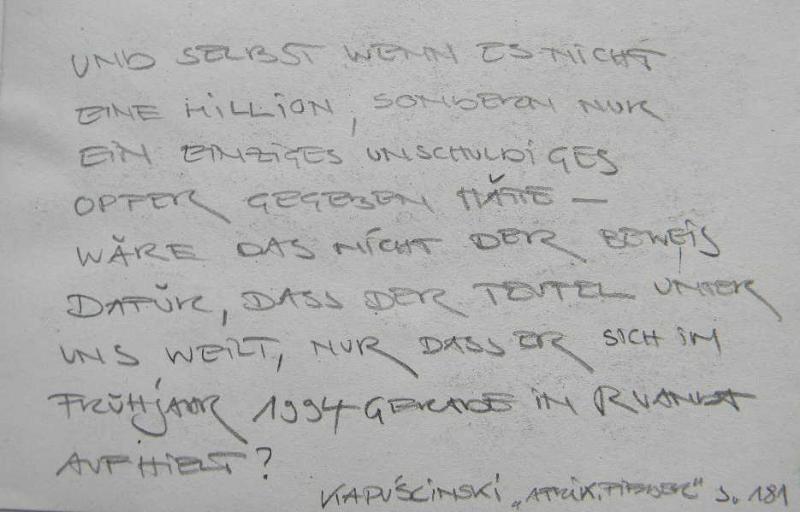 UND SELBST WENN ES NICHT
EINE MILLION, SONDERN NUR
EIN EINZIGES UNSCHULDIGES
OPFER GEGEBEN HÄTTE –
WÄRE DAS NICHT DER BEWEIS
DAFÜR, DASS DER TEUFEL UNTER
UNS WEILT, NUR DASS ER SICH IM
FRÜHJAHR 1994 GERADE IN RUANDA
AUFHIELT?
KAPUŚCINSKI „AFRIK. FIEBER“ S. 181